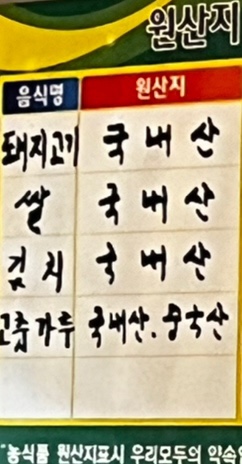 원산지
음식명 원산지
돼지고기 국내산
쌀 국내산
김치 국내산
고춧가루 국내산. 중국산
"농식품 원산지표시 우리모두의 약속